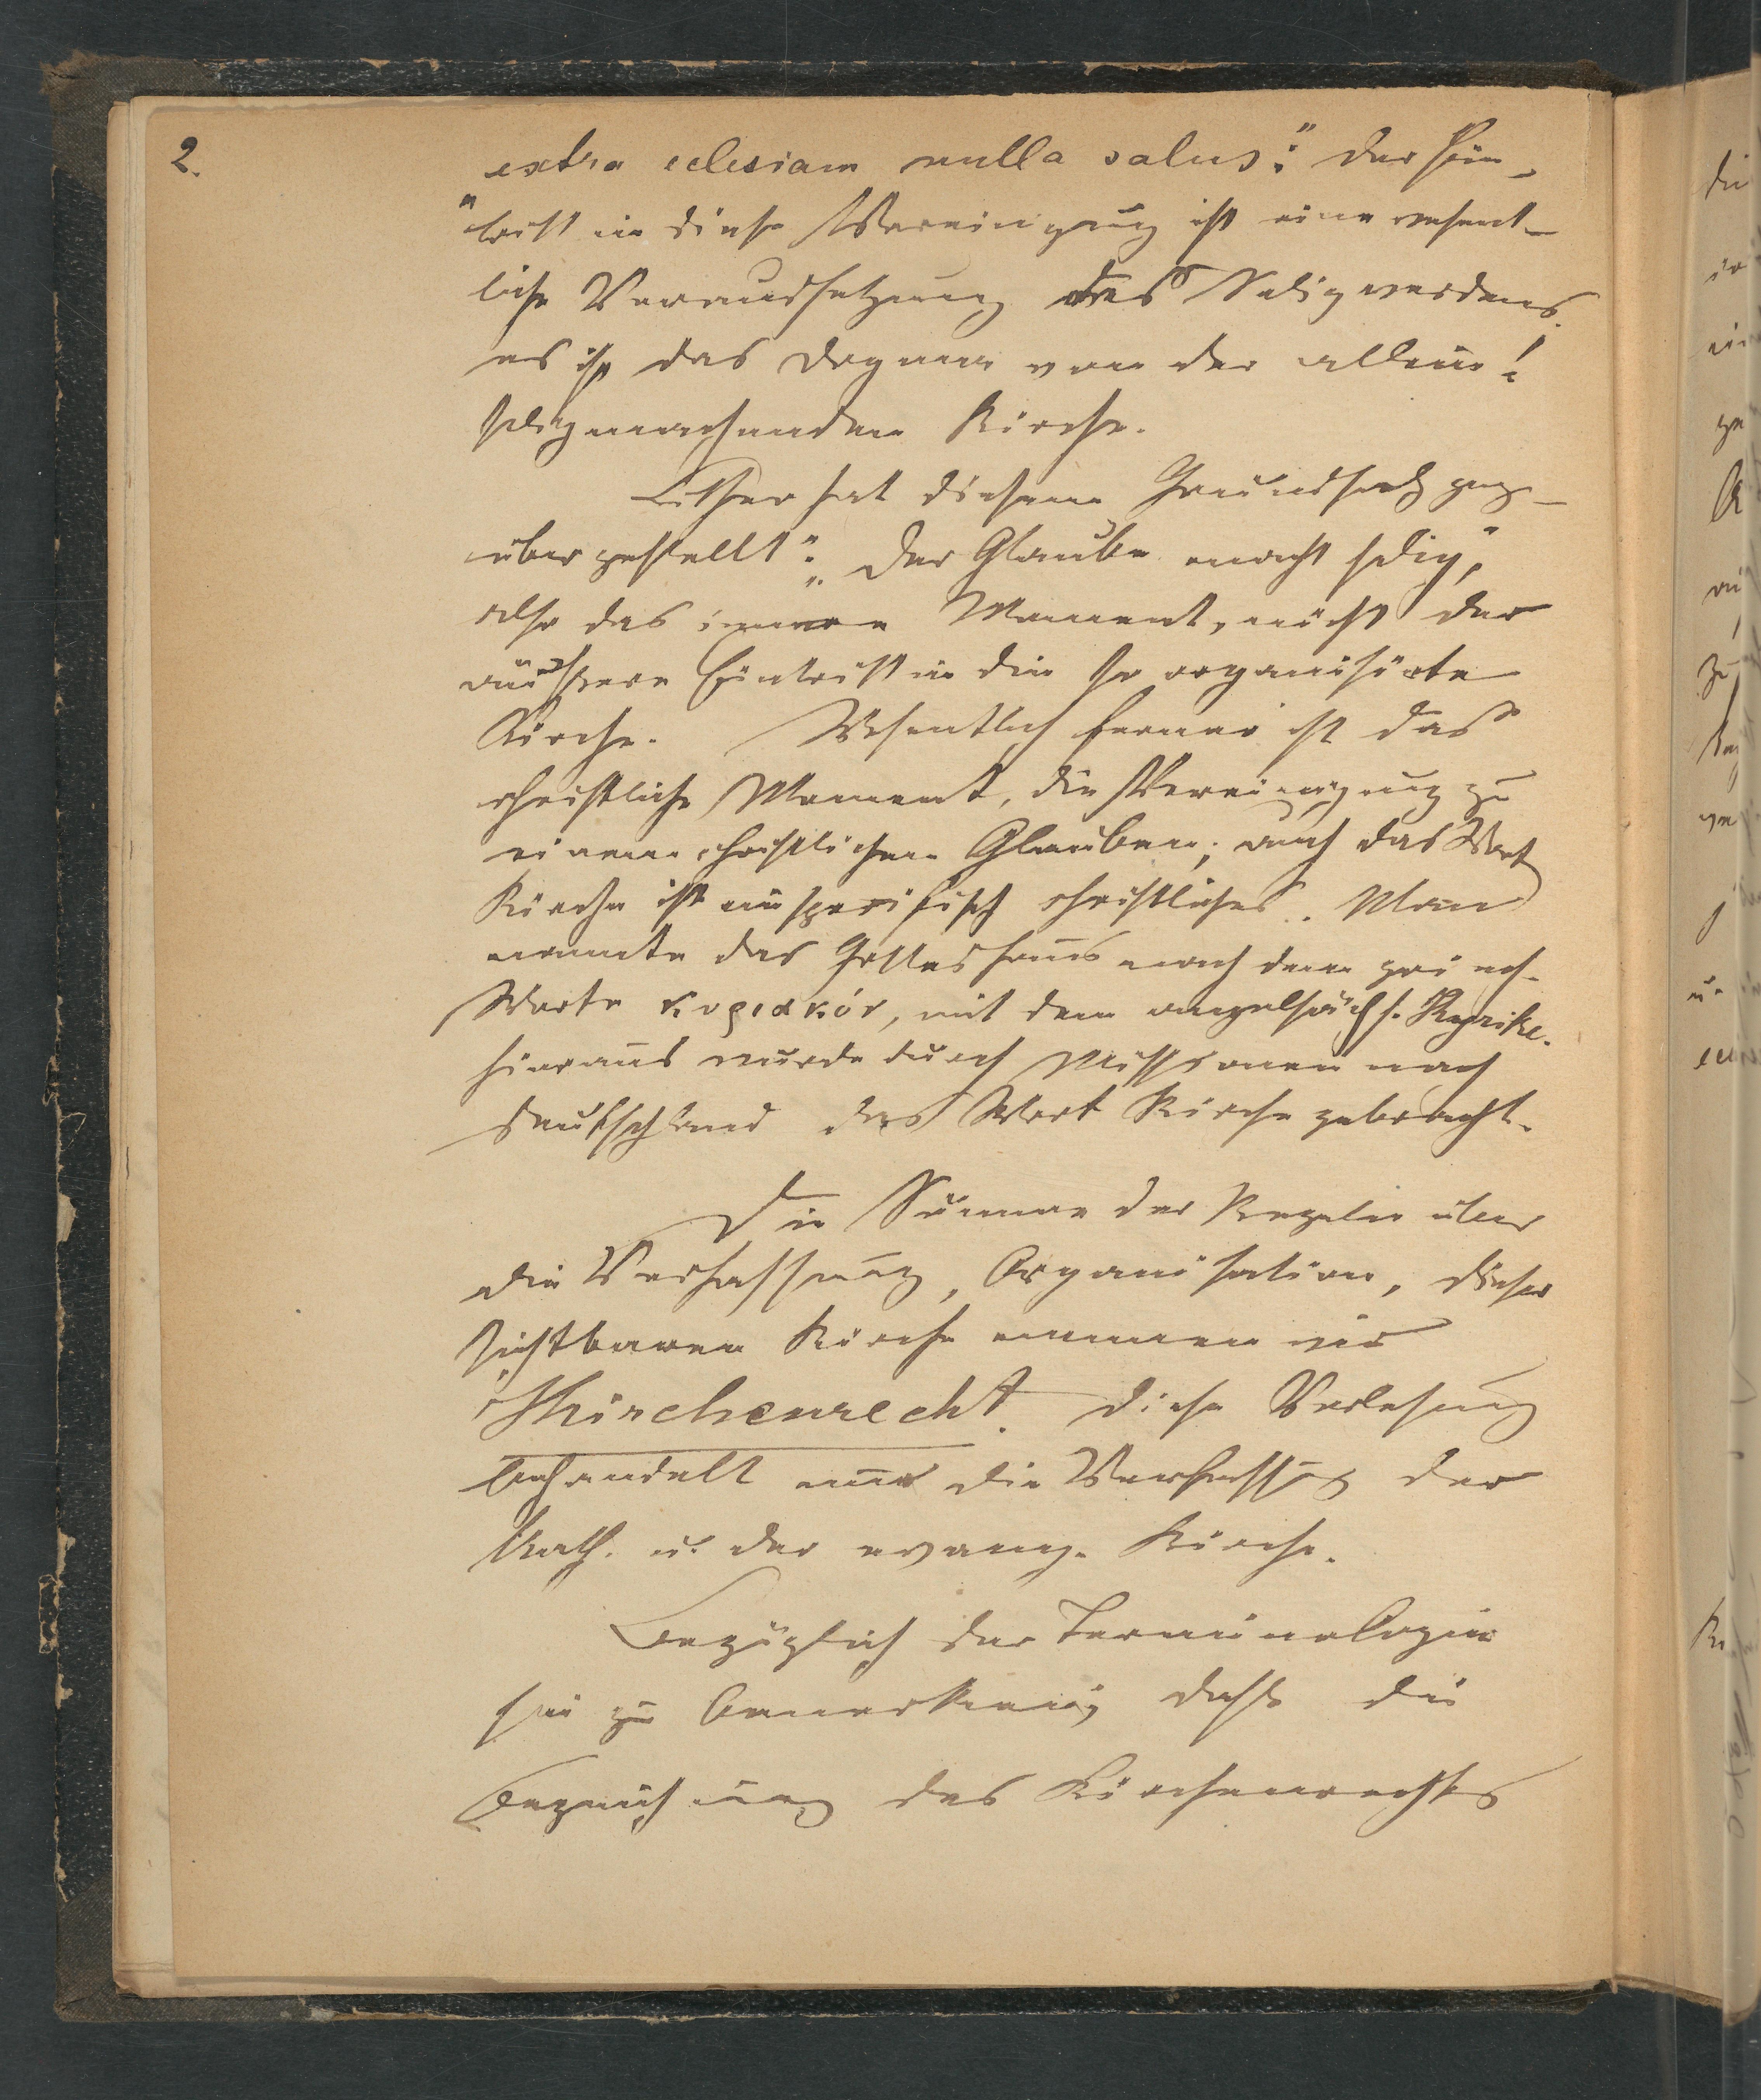 2.
extra eclesiam nulla salus": der Ein-
"tritt in diese Vereinigung ist eine wesent-
liche Voraussetzung des Seligwerdens.
es ist das Dogma von der allein!
seligmachenden Kirche.
Luther hat diesem Grundsatz geg-
über gestellt: "Der Glaube macht selig",
also das innere Moment, nicht der
äussere Eintritt in die so organisirte
Kirche. Wesentlich ferner ist das
christliche Moment, die Vereinigung zu
einem christlichen Glauben; auch das Wort
Kirche ist ein spezifisch christliches. Man
nannte das Gotteshaus nach dem griech.
Worte κυριακόν, mit dem angelsächs.
hieraus wurde durch Missionen nach
Deutschland das Wort Kirche gebracht.
Die Summe der Regeln über
die Verfassung, Organisation, dieser
sichtbaren Kirche nennen wir
Kirchenrecht. Diese Vorlesung
behandelt nur die Verfassung der
kath. u. der evang. Kirche.
Bezüglich der Terminologie
sei zu bemerken, dass die
Bezeichnung des Kirchenrechts